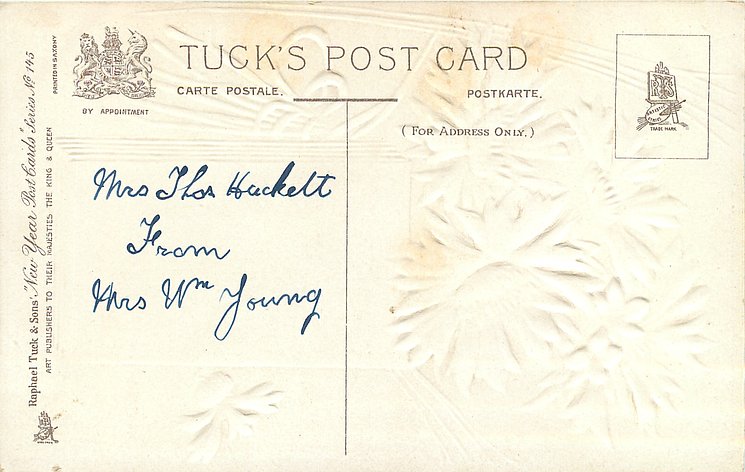 TUCK'S POST CARD
CARTE POSTALE.
POSTKARTE.
BY APPOINTMENT
(FOR ADDRESS ONLY.)
TRADE MARK
Mrs Thos Hackett
From
Mrs Wm Young
Raphael Tuck & Sons' "New Year Post Cards" Series No 145
PRINTED IN SAXONY
ART PUBLISHERS TO THEIR MAJESTIES THE KING & QUEEN